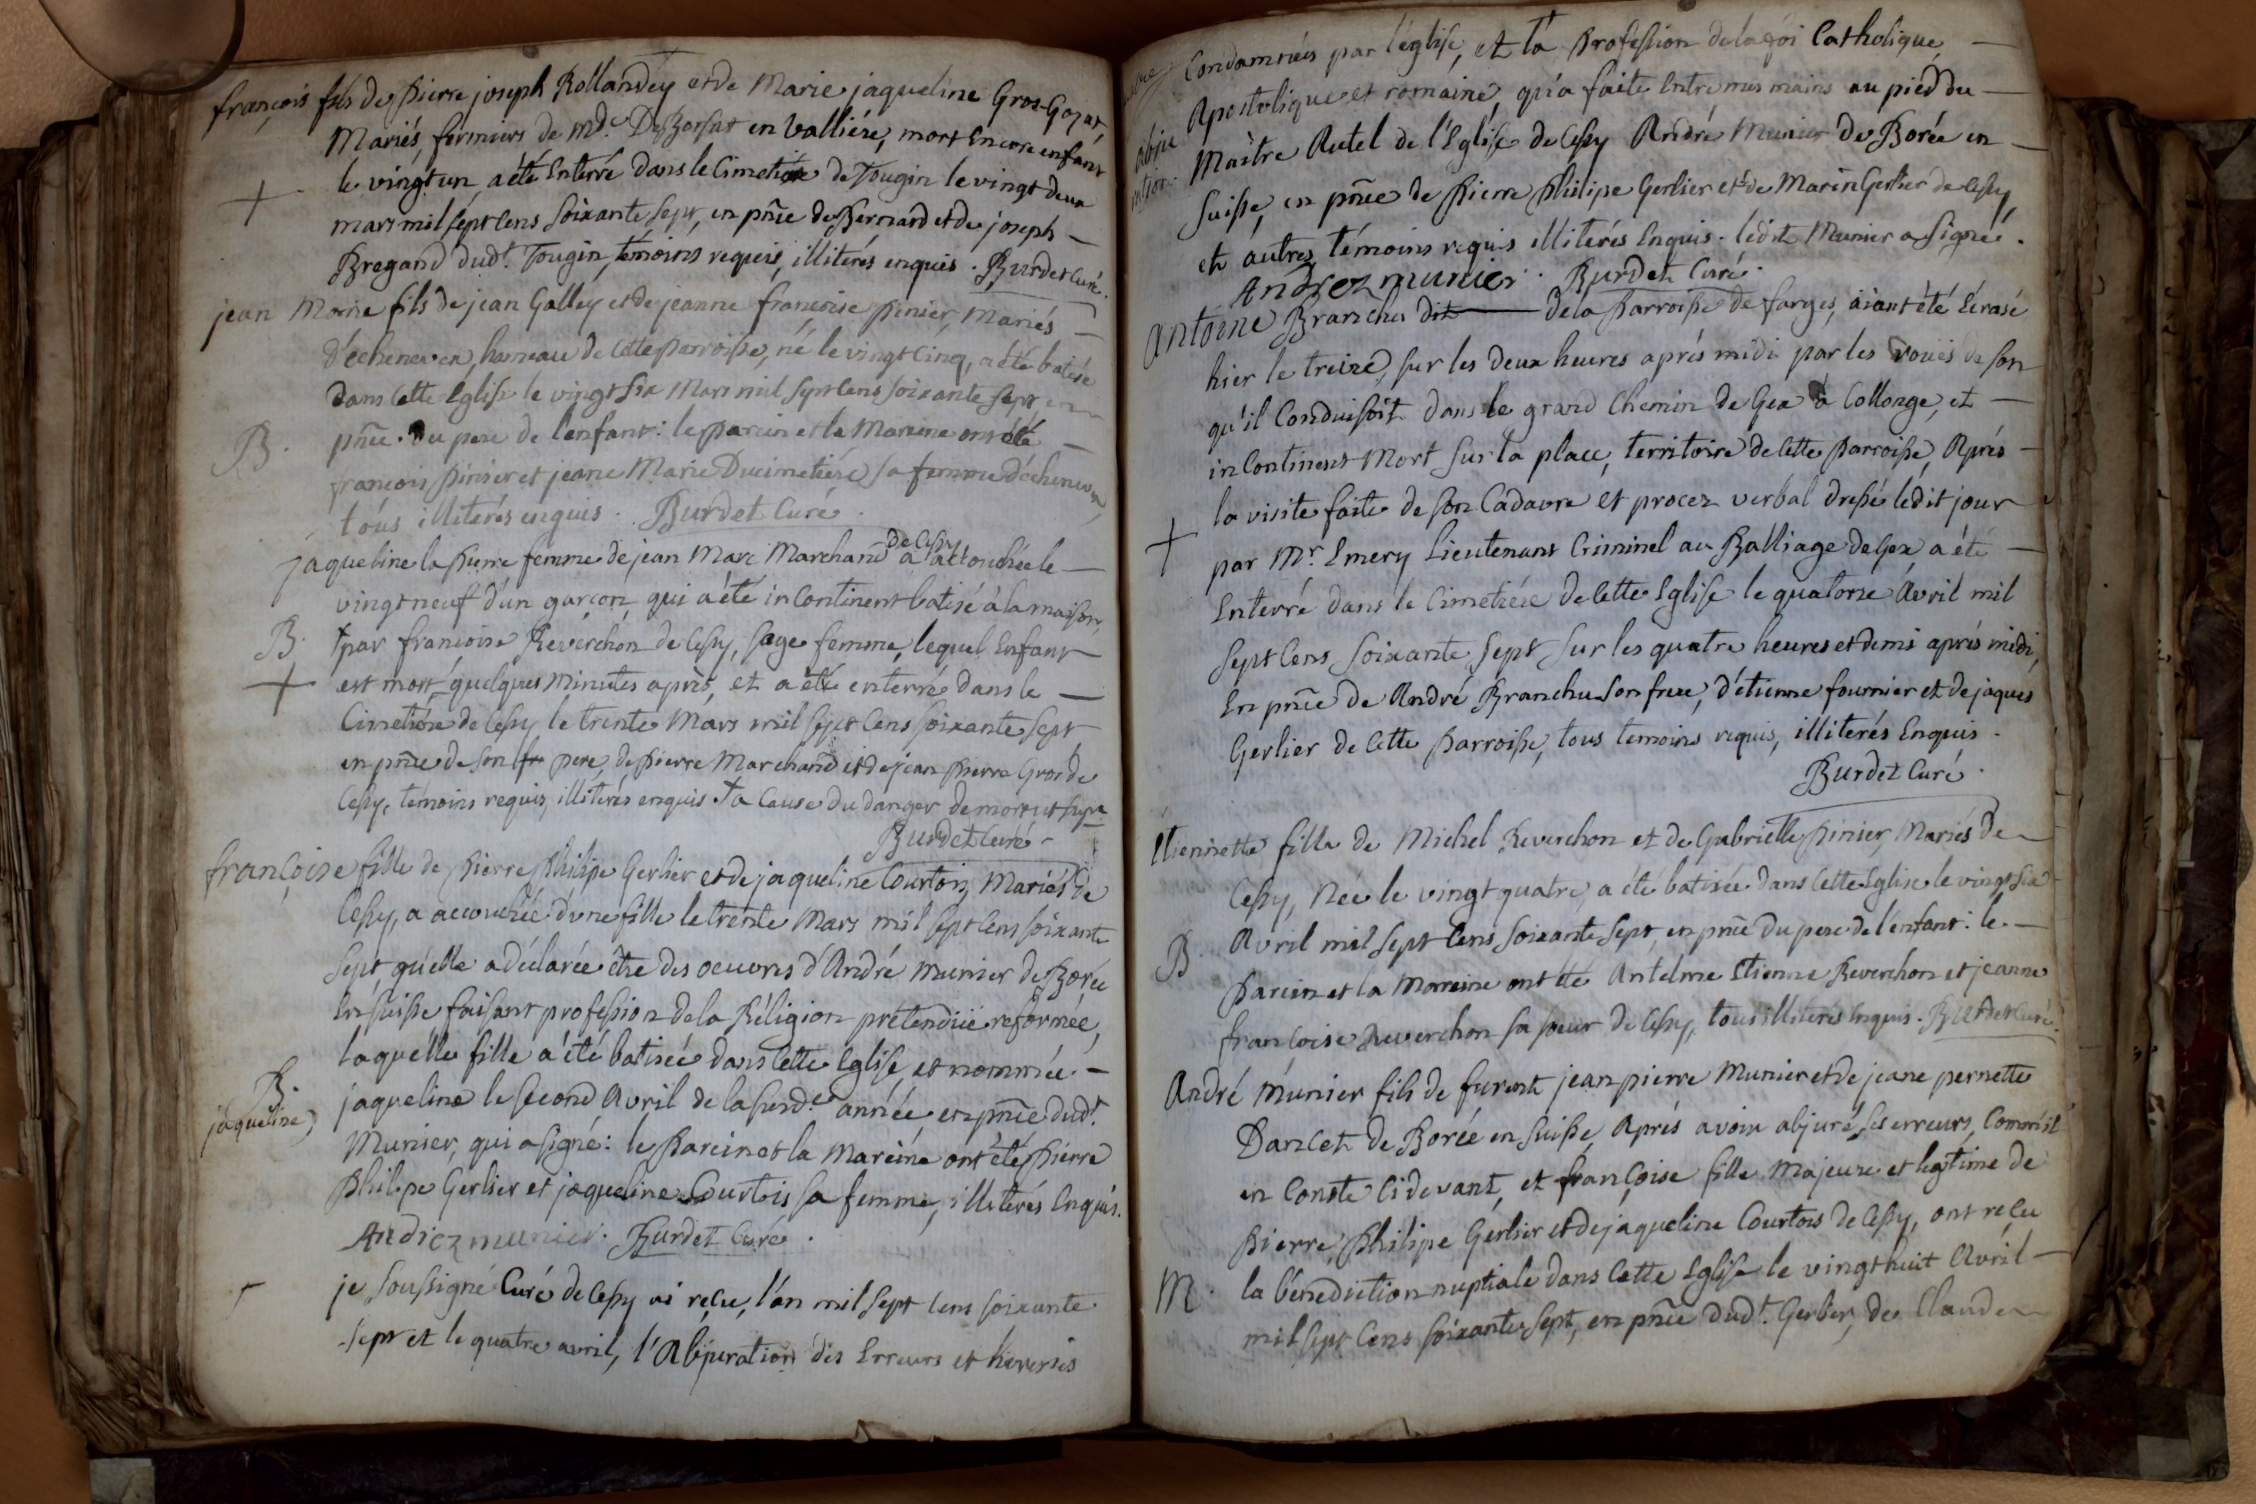 françois fils de Pierre joseph Rollandey et de Marie jaqueline Gros-Gojat,
Mariés, fermiers de md.e DeBorsat en Valliére, mort Encore enfant
le vingt un, a été Enterré dans le Cimetiére de Tougin le vingt deux
+
mars mil sépt Cens Soixante sept, en pñce de Bernard et de joseph —
Bregand dud.t Tougin, témoins requis, illitérés enquis. Burdet Curé.
jean Marie fils de jean Galley et de jeanne françoise Pinier, Mariés —
d'échenevex, hameau de Cette Parroisse, né le vingt Cinq, a été batisé
dans Cette Eglise le vingt Six Mars mil Sept Cens soixante sept, en
B.
pñce. Du pere de l'enfant: le Parein et la Mareine ont été —
françois Pinier et jeane Marie Ducimetiére sa femme d'échenevex,
tous illiterés enquis. Burdet Curé.
jaqueline la Pierre femme de jean Marc Marchand de Cessy a accouchée le —
vingt neuf d'un garçon, qui a été inContinent batisé à la maison,
B.
+ par françoise Reverchon de Cessy, sage femme, lequel Enfant
+
est mort quelques minutes aprés, et a été enterré dans le —
Cimetiére de Cessy le trente Mars mil sept Cens soixante sept
en pñce de son pere, de Pierre Marchand et de jean Pierre Gros de
Cessy, témoins requis, illitérés enquis. + a Cause du danger de mort ut supra
Burdet Curé.
françoise fille de Pierre Philipe Gerlier et de jaqueline Courtois, Mariés de
Cessy, a accouchée d'une fille le trente Mars mil sept Cens soixante
sept, qu'elle a déclarée être des oeuvres d'André Munier de Borée
En suisse faisant profession de la Réligion prétendüe reformée,
laquelle fille a été batisée dans Cette Eglise, et nommée —
B.
jaqueline
jaqueline le second Avril de la susd.e année, en pñce dud.t
Munier, qui a signé: le Parein et la Mareine ont été Pierre
Philipe Gerlier et jaqueline Courtois sa femme, illitérés Enquis.
Andrez munier. Burdet Curé.
je soussigné Curé de Cessy ai reçu, l'an mil sept Cens soixante
sept et le quatre avril, l'Abjuration des Erreurs et heresies
Condamnées par l'église, et la Profession de la foi Catholique, —
Apostolique et romaine, qu'a faite Entre mes mains au pied du —
Abju
ration.
Maître Autel de l'Eglise de Cessy André Munier de Borée en —
Suisse, en pñce de Pierre Philipe Gerlier et de Marin Gerlier de Cessy,
et autres témoins requis illitérés Enquis. ledit Munier a Signé.
Andrez munier. Burdet Curé.
Antoine Branchu dit — de la Parroisse de farges, aiant été Ecrasé
hier le treize, sur les deux heures aprés midi par les roues de son
qu'il Conduisoit dans le grand Chemin de Gex à Collonge, et —
inContinent Mort sur la place, territoire de Cette Parroisse, Aprés —
la visite faite de son Cadavre et procez verbal dressé ledit jour
+
par Mr. Emery Lieutenant Criminel au Balliage de Gex a été —
Enterré dans le Cimetiére de Cette Eglise le quatorze Avril mil
sept Cens soixante sept sur les quatre heures et demi aprés midi,
En pñce de André Branchu son frere, d'étienne fournier et de jaques
Gerlier de Cette Parroisse, tous temoins requis, illiterés Enquis.
Burdet Curé.
Etiennette fille de Michel Reverchon et de Gabrielle Pinier, Mariés de
Cessy, Née le vingt quatre, a été batisée dans Cette Eglise le vingt Six
B
Avril mil sept Cens soixante sept, en pñce du pere de l'enfant: le —
Parein et la Mareine ont été Antelme Etienne Reverchon et jeanne
françoise Reverchon sa soeur de Cessy, tous illitérés Enquis. Burdet Curé.
André Munier fils de fut jean pierre Munier et de jeane pernette
Dancet de Borée en Suisse, Aprés avoir abjuré ses erreurs, Comm'il
en Conste Cidevant, et françoise fille Majeure et legitime de
Pierre Philipe Gerlier et de jaqueline Courtois de Cessy, ont reçu
M.
la bénediction nuptiale dans Cette Eglise le vingt huit Avril —
mil sept Cens soixante sept, en pñce dud.t Gerlier, de Claude